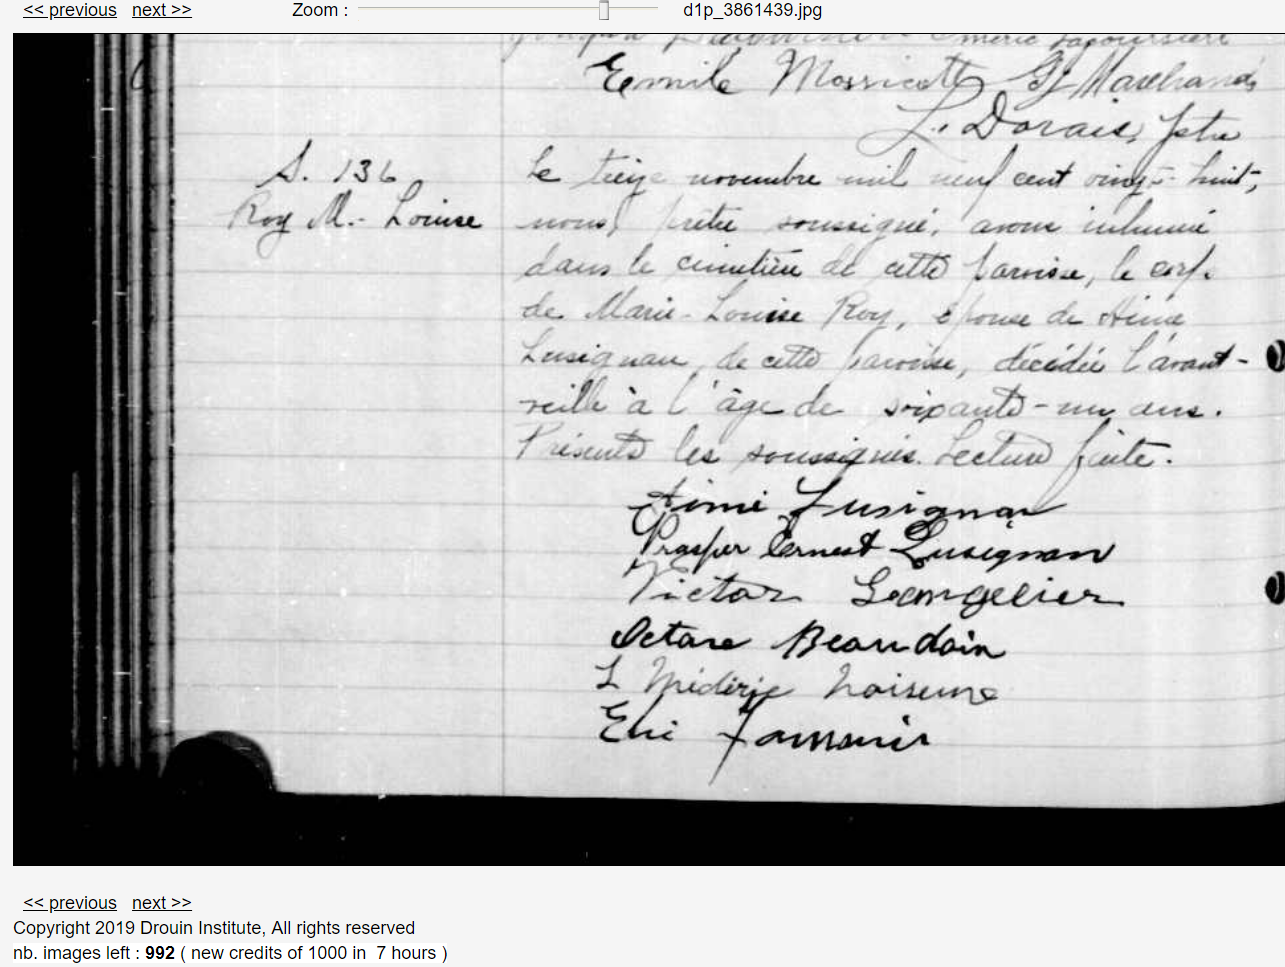 << previous next >> Zoom : d1p_3861439.jpg
Emile Massicotte Marchand
L. Dorais, ptre
S. 136
Roy M.-Louise
Le treize novembre mil neuf cent vingt-huit,
nous, prêtre soussigné, avons inhumé
dans le cimetière de cette paroisse, le corps
de Marie-Louise Roy, épouse de Aimé
Lusignan, de cette paroisse, décédée l'avant-
veille à l'âge de soixante-un ans.
Présents les soussignés. Lecture faite.
Aimé Lusignan
Prosper Ernest Lusignan
Victor Langelier
Octave Beaudoin
L
<< previous next >>
Copyright 2019 Drouin Institute, All rights reserved
nb. images left : 992 ( new credits of 1000 in 7 hours )